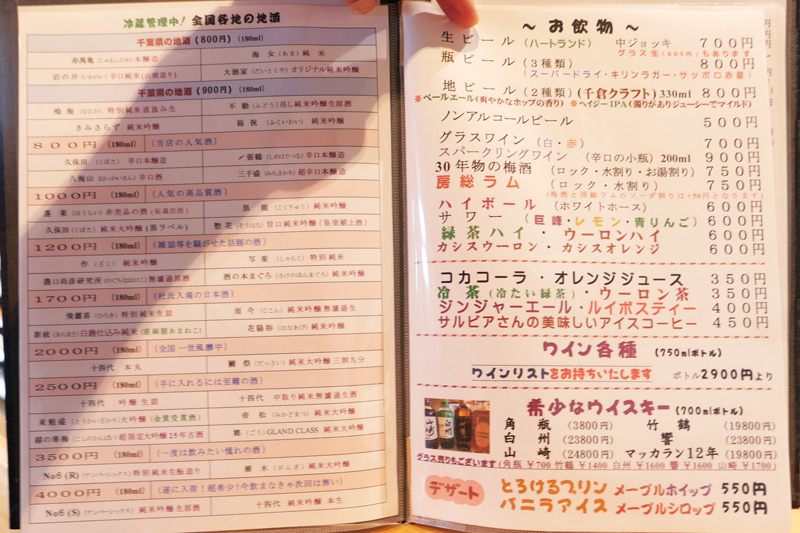 冷蔵管理中! 全国各地の地酒
千葉県の地酒 (800円) (180ml)
寿萬亀 本醸造
海女 (あま) 純米
岩の井 辛口純米(山廃造り)
大徳家 (だいとくや) オリジナル純米吟醸
千葉県の地酒 (900円) (180ml)
鳴海 (なるか) 特別純米直汲み生
不動 (ふどう) 吊し純米吟醸生原酒
きみさらず 純米吟醸
福祝 (ふくいわい) 純米吟醸
800円 (180ml) (当店の人気酒)
久保田 (くぼた) 辛口本醸造
〆張鶴 (しめはりつる) 辛口本醸造
八海山 (はっかいさん) 辛口
三千盛 (みちさかり) 超辛口本醸造
1000円 (180ml) (人気の高品質酒)
蓬莱 (ほうらい) 非売品の酒 (秘蔵原酒)
黒龍 (こくりゅう) 純米吟醸
久保田 (くぼた) 純米大吟醸 (黒ラベル)
惣花 (そうはな) 旨口純米吟醸 (皇室献上酒)
1200円 (180ml) (雑誌等を騒がせた話題の酒)
作 (ざく) 純米吟醸
写楽 (しゃらく) 特別純米
農口尚彦研究所 (のぐちなおひこ) 無濾過原酒
酒の本まぐろ (さけのほんまぐろ) 純米吟醸
1700円 (180ml) (杜氏入魂の日本酒)
飛露喜 (ひろき) 特別純米生詰
而今 (じこん) 純米吟醸無濾過生
新政 (あらまさ) 白麹仕込み純米 (亜麻猫あまねこ)
花陽浴 (はなあび) 純米吟醸
2000円 (180ml) (全国一世風靡中)
十四代 本丸
獺祭 (だっさい) 純米大吟醸三割九分
2500円 (180ml) (手に入れるには至難の酒)
十四代 吟醸 生詰
十四代 中取り純米無濾過生酒
東魁盛 (とうかいざかり) 大吟醸 (金賞受賞酒)
帝松 (みかどまつ) 純米大吟醸
越の寒梅 (こしのかんばい) 超限定大吟醸25年古酒
郷 (ごう) GLAND CLASS 純米大吟醸
3500円 (180ml) (一度は飲みたい憧れの酒)
No6 (R) (ナンバーシックス) 特別純米生酛造り
雁木 (がんぎ) 純米大吟醸
4000円 (180ml) (遂に入荷!超希少!今飲まなきゃ次回は無い)
No6 (S) (ナンバーシックス) 純米吟醸生原酒
十四代 純米吟醸 本生
~ お飲物 ~
生ビール (ハートランド) 中ジョッキ 700円
グラス生(400円)もあります
瓶ビール (3種類) 800円
(スーパードライ・キリンラガー・サッポロ赤星)
地ビール (2種類) (千倉クラフト) 330ml 800円
※ペールエール(爽やかなホップの香り) ※ヘイジーIPA(濁りがありジューシーでマイルド)
ノンアルコールビール 500円
グラスワイン (白・赤) 750円
スパークリングワイン (辛口の小瓶) 200ml 900円
30年物の梅酒 (ロック・水割り・お湯割り) 750円
房総ラム (ロック・水割り) 750円
(梅酒と房総ラムのソーダ割りは+50円となります)
ハイボール (ホワイトホース) 600円
サワー (巨峰・レモン・青りんご) 600円
緑茶ハイ・ウーロンハイ 600円
カシスウーロン・カシスオレンジ 600円
コカコーラ・オレンジジュース 350円
冷茶 (冷たい緑茶)・ウーロン茶 350円
ジンジャーエール・ルイボスティー 400円
サルビアさんの美味しいアイスコーヒー 450円
ワイン各種 (750mlボトル)
ワインリストをお持ちいたします ボトル2900円より
希少なウイスキー (700mlボトル)
角瓶 (3800円) 竹鶴 (19800円)
白州 (24800円) 響 (23800円)
山崎 (24800円) マッカラン12年 (19800円)
グラス売りもございます (角瓶¥700 竹鶴¥1400 白州¥1600 響¥1600 山崎¥1700)
デザート
とろけるプリン メープルホイップ 550円
バニラアイス メープルシロップ 550円